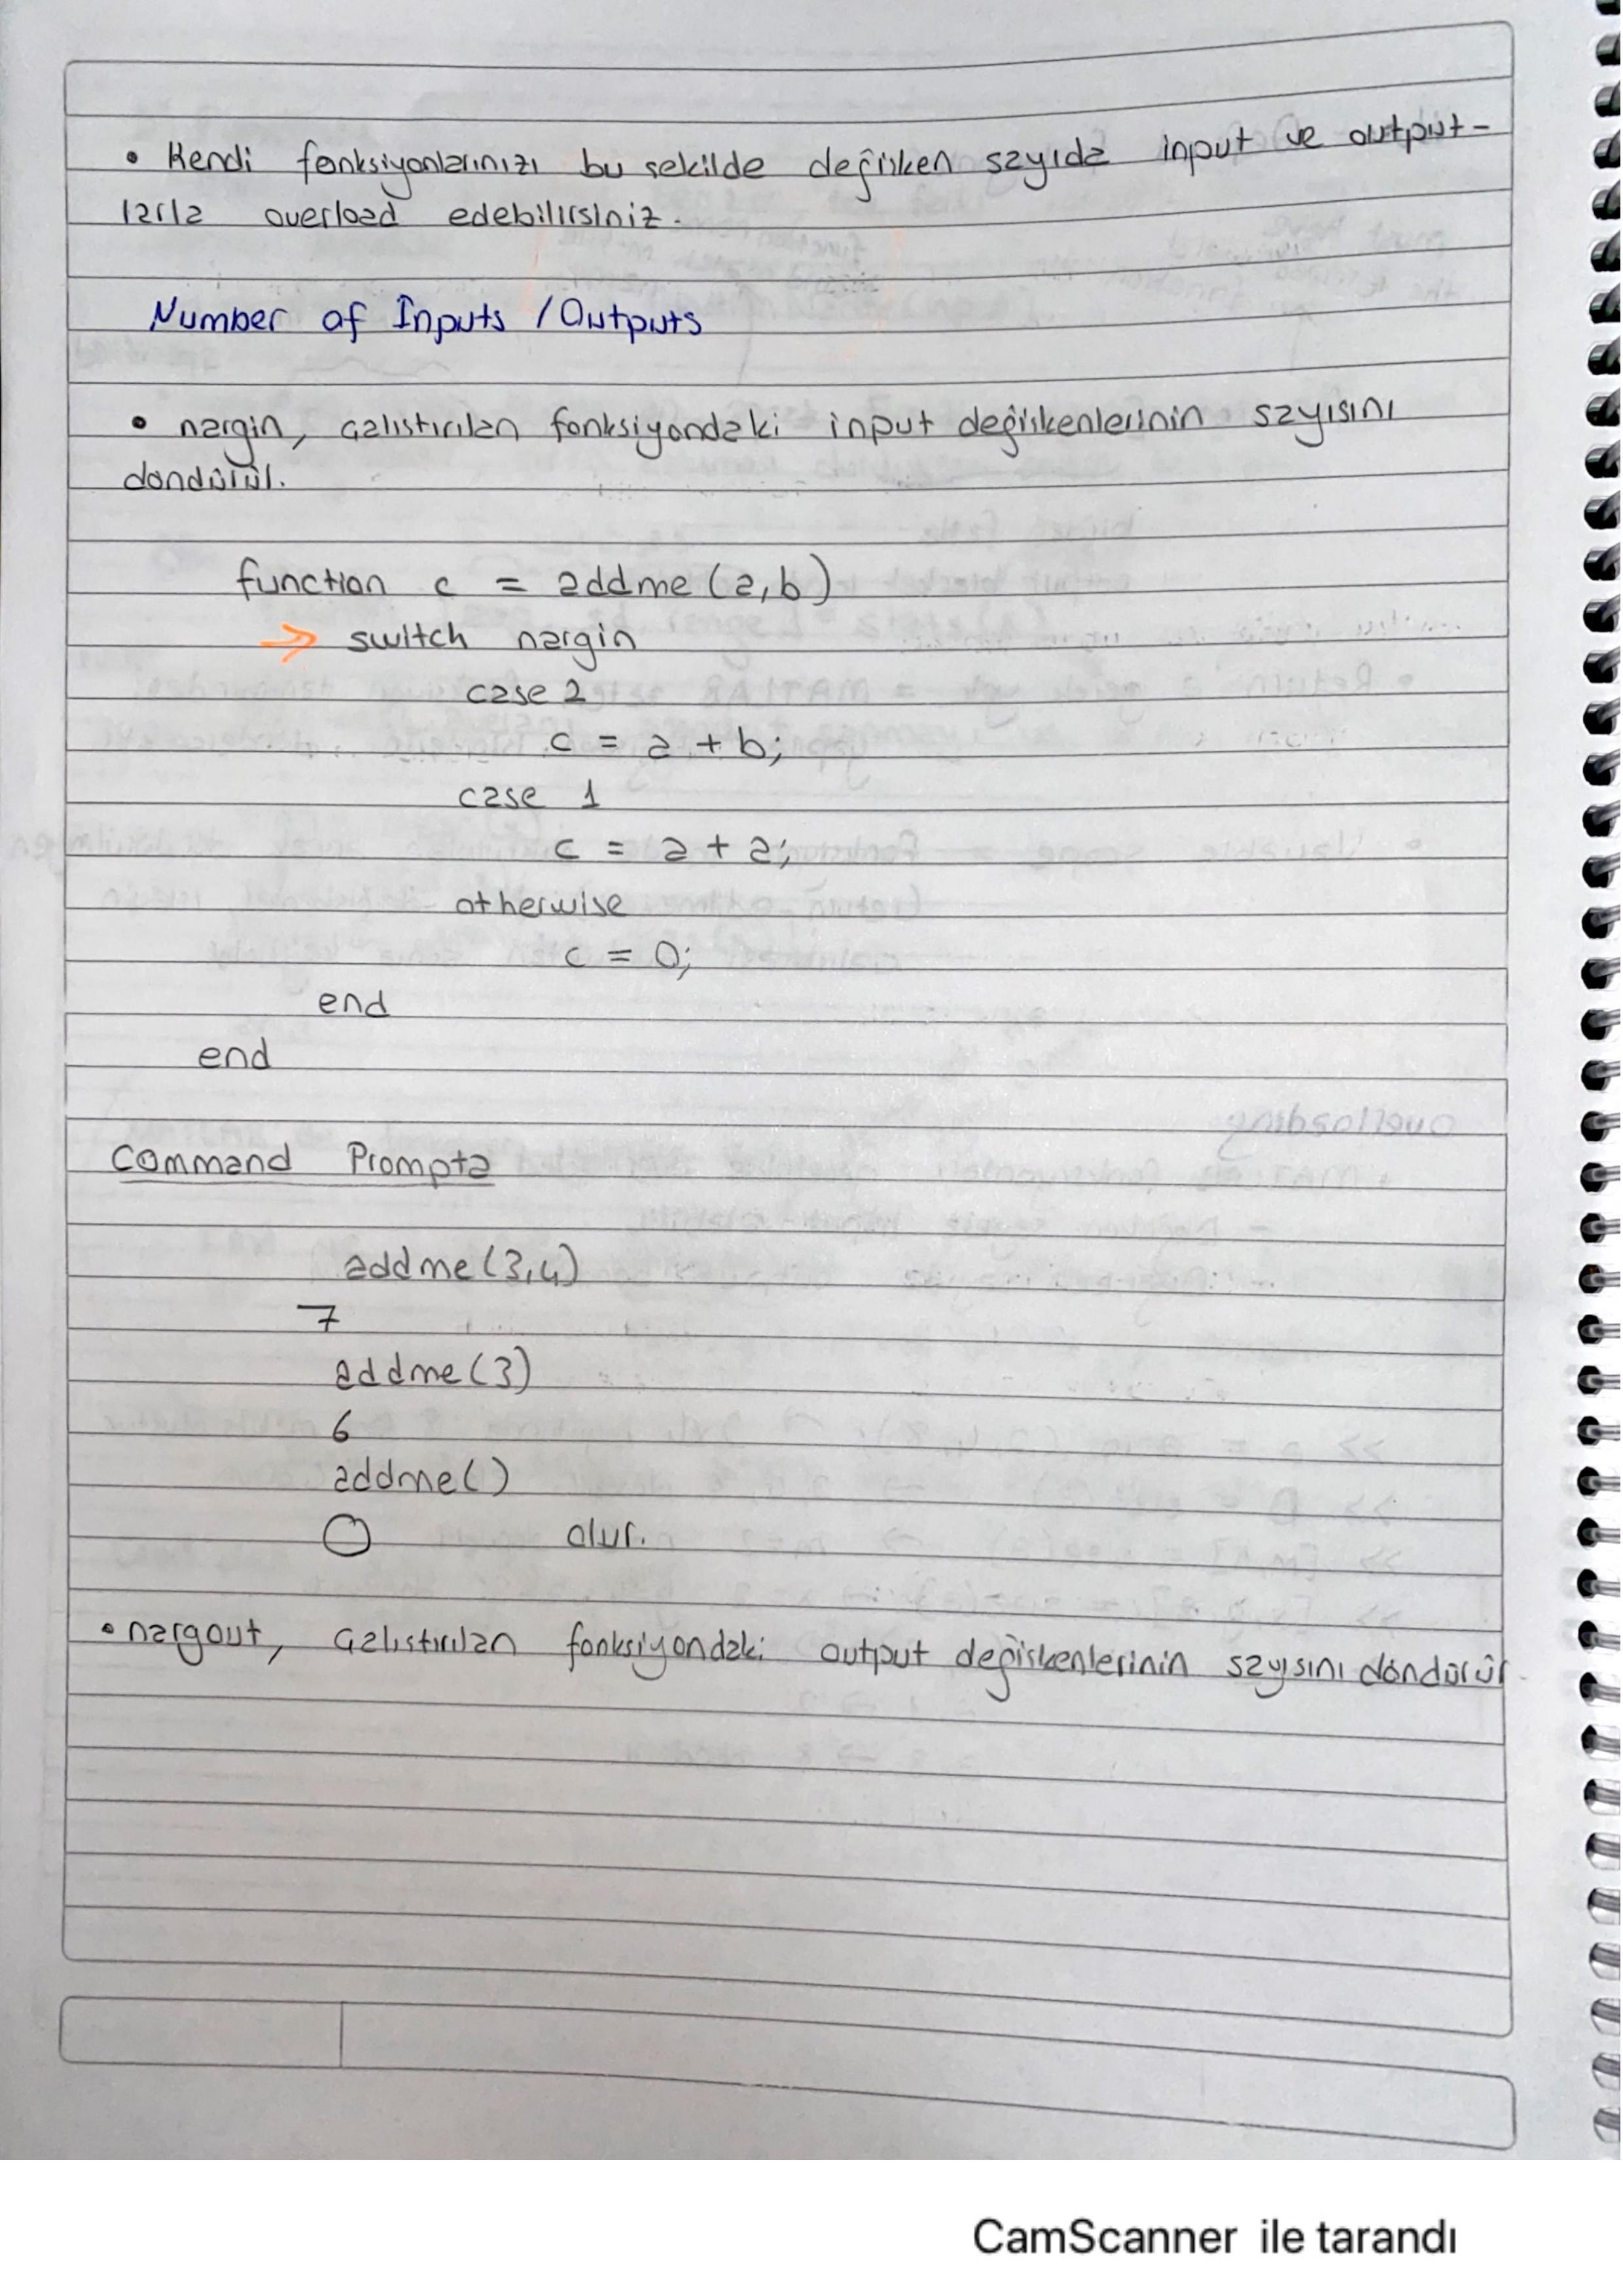 • Kendi fonksiyonlarınızı bu sekilde değişken sayıda input ve output-
larla overload edebilirsiniz.
Number of Inputs / Outputs
• nargin, çalıstırılan fonksiyondaki input değişkenlerinin sayısını
döndürür.
function c = addme (a,b)
⇒ switch nargin
case 2
c = a + b;
case 1
c = a + a;
otherwise
c = 0;
end
end
Command Prompta
addme (3,4)
7
addme (3)
6
addme ()
0 olur.
• nargout, çalıstırılan fonksiyondaki output değişkenlerinin sayısını döndürür
CamScanner ile tarandı